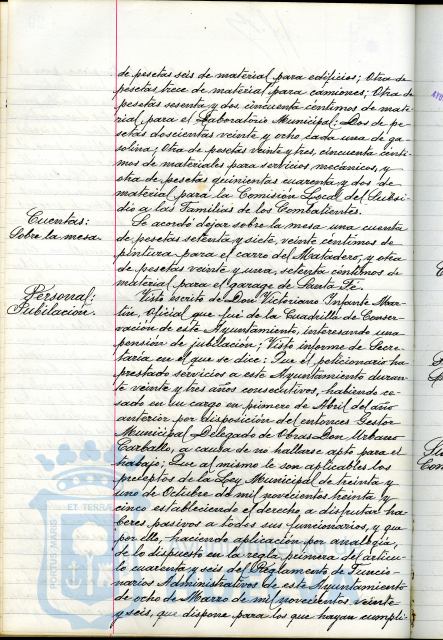 de pesetas seis de material para edificios; Otra de
pesetas trece de material para camiones; Otra de
pesetas sesenta y dos cincuenta céntimos de mate-
rial para el Laboratorio Municipal; Dos de pe-
setas doscientas veinte y ocho cada una de ga-
solina; Otra de pesetas veinte y tres, cincuenta cénti-
mos de materiales para servicios mecánicos, y
otra de pesetas quinientas cuarenta y dos de
material para la Comisión Local del Subsi-
dio a las Familias de los Combatientes.
Cuentas:
Sobre la mesa.
Se acordó dejar sobre la mesa una cuenta
de pesetas setenta y siete, veinte céntimos de
pintura para el carro del Matadero, y otra
de pesetas veinte y una, setenta céntimos de
material para el garage de Santa Fé.
Personal:
Jubilación.
Visto escrito de Don Victoriano Infante Mar-
tín, Oficial que fué de la Cuadrilla de Conser-
vación de este Ayuntamiento, interesando una
pensión de jubilación; Visto informe de Secre-
taria en el que se dice: Que el peticionario ha
prestado servicios a este Ayuntamiento duran-
te veinte y tres años consecutivos, habiendo ce-
sado en su cargo en primero de Abril del año
anterior por disposición del entonces Gestor
Municipal Delegado de Obras Don Urbano
Carballo, a causa de no hallarse apto para el
trabajo; Que al mismo le son aplicables los
preceptos de la Ley Municipal de treinta y
uno de Octubre de mil novecientos treinta y
cinco estableciendo el derecho, a disfrutar ha-
beres pasivos a todos sus funcionarios, y que
por ello, haciendo aplicación por analogía,
de lo dispuesto en la regla primera del artícu-
lo cuarenta y seis del Reglamento de Funcio-
narios Administrativos de este Ayuntamiento
de ocho de Marzo de mil novecientos veinte
y seis, que dispone para los que hayan cumpli-
ET TERRA
PORTUS MARIS